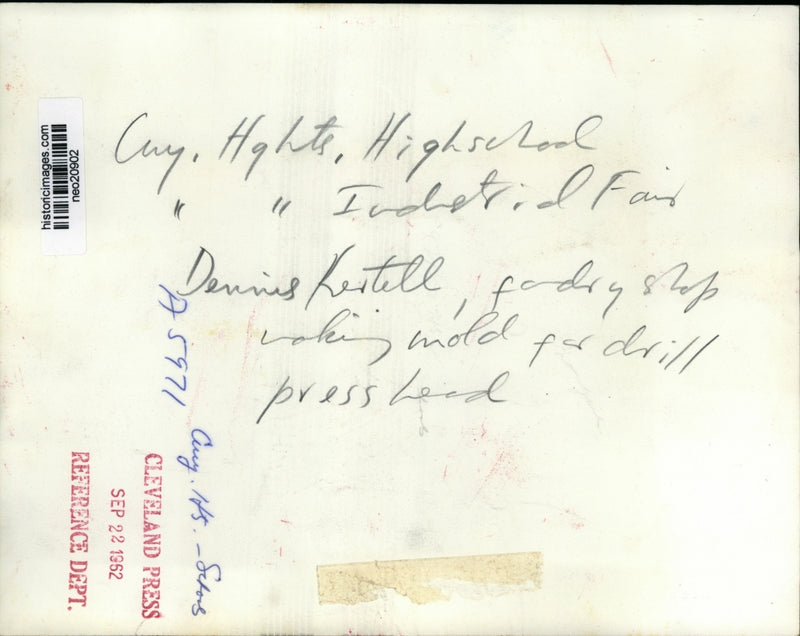 Cuy. Hghts. Highschool
" " Industrial Fair
Dennis Kestell, foudry shop
making mold for drill
press head
historicimages.com
neo20902
A 5971
Cuy. Hts. - Schools
CLEVELAND PRESS
SEP 22 1962
REFERENCE DEPT.